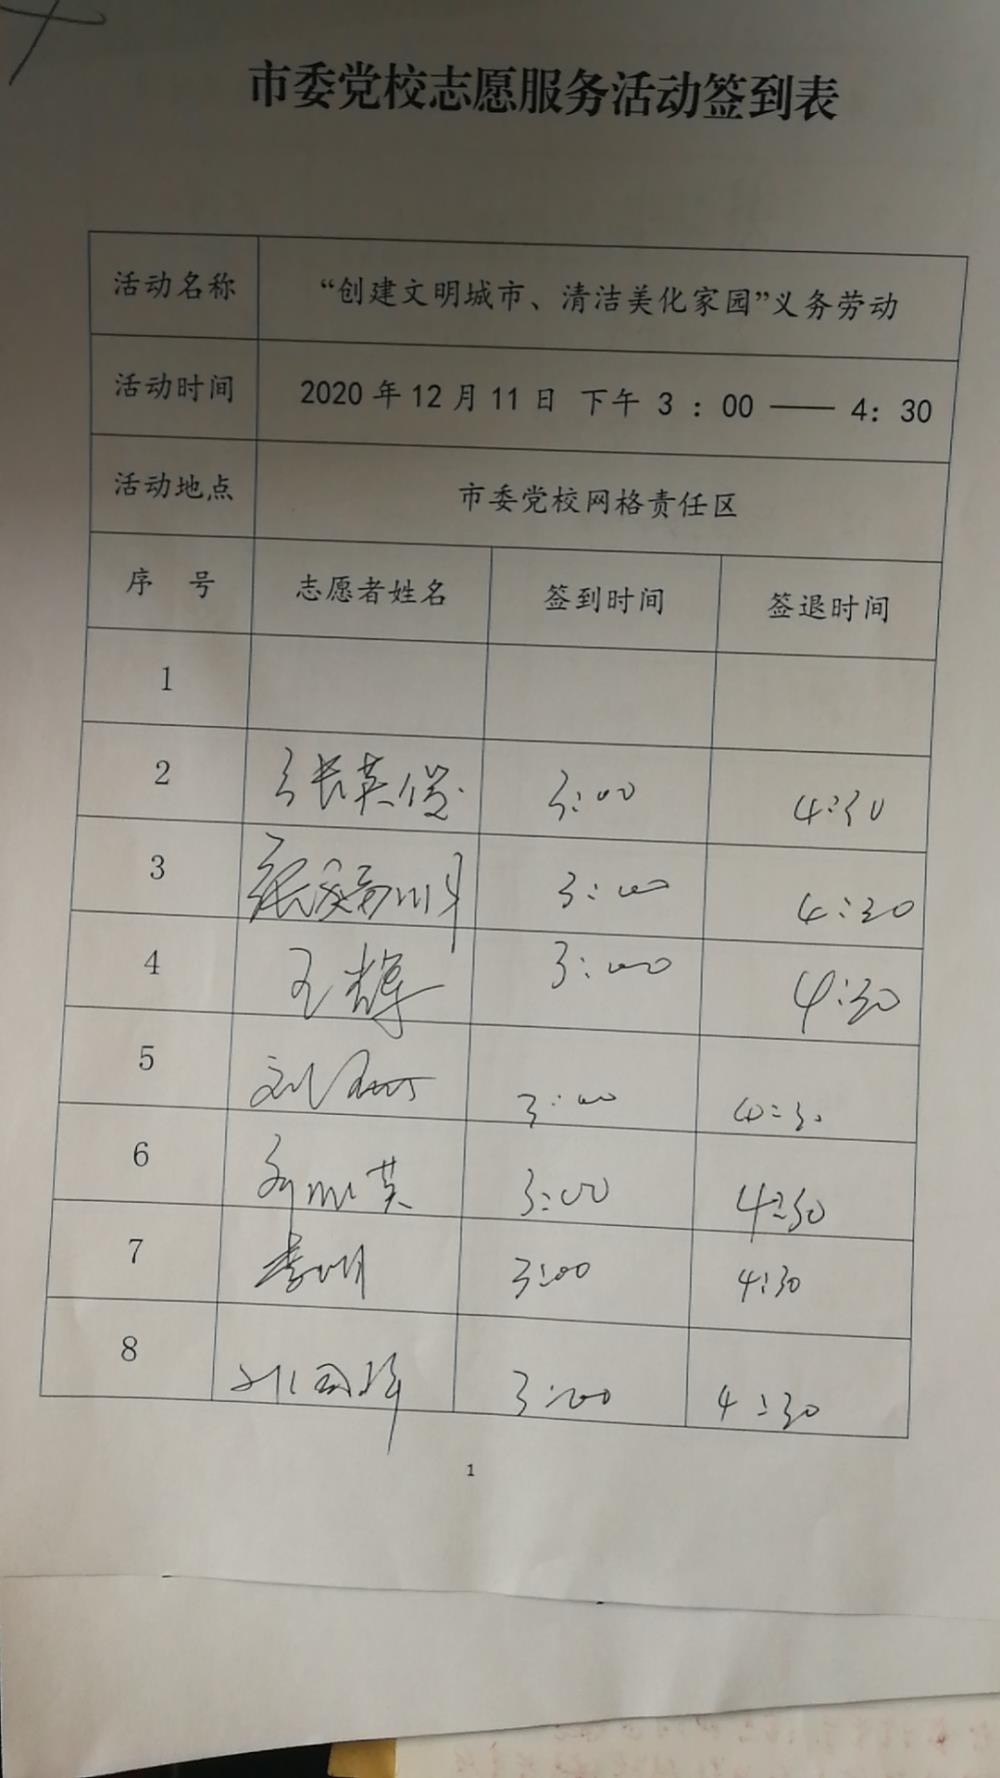 市委党校志愿服务活动签到表
活动名称 “创建文明城市、清洁美化家园”义务劳动
活动时间 2020年12月11日 下午 3：00——4：30
活动地点 市委党校网格责任区
序 号 志愿者姓名 签到时间 签退时间
1
2 张英俊 3:00 4:30
3 3:00 4:30
4 王辉 3:00 4:30
5 3:00 4:30
6 3:00 4:30
7 李明 3:00 4:30
8 3:00 4:30
1